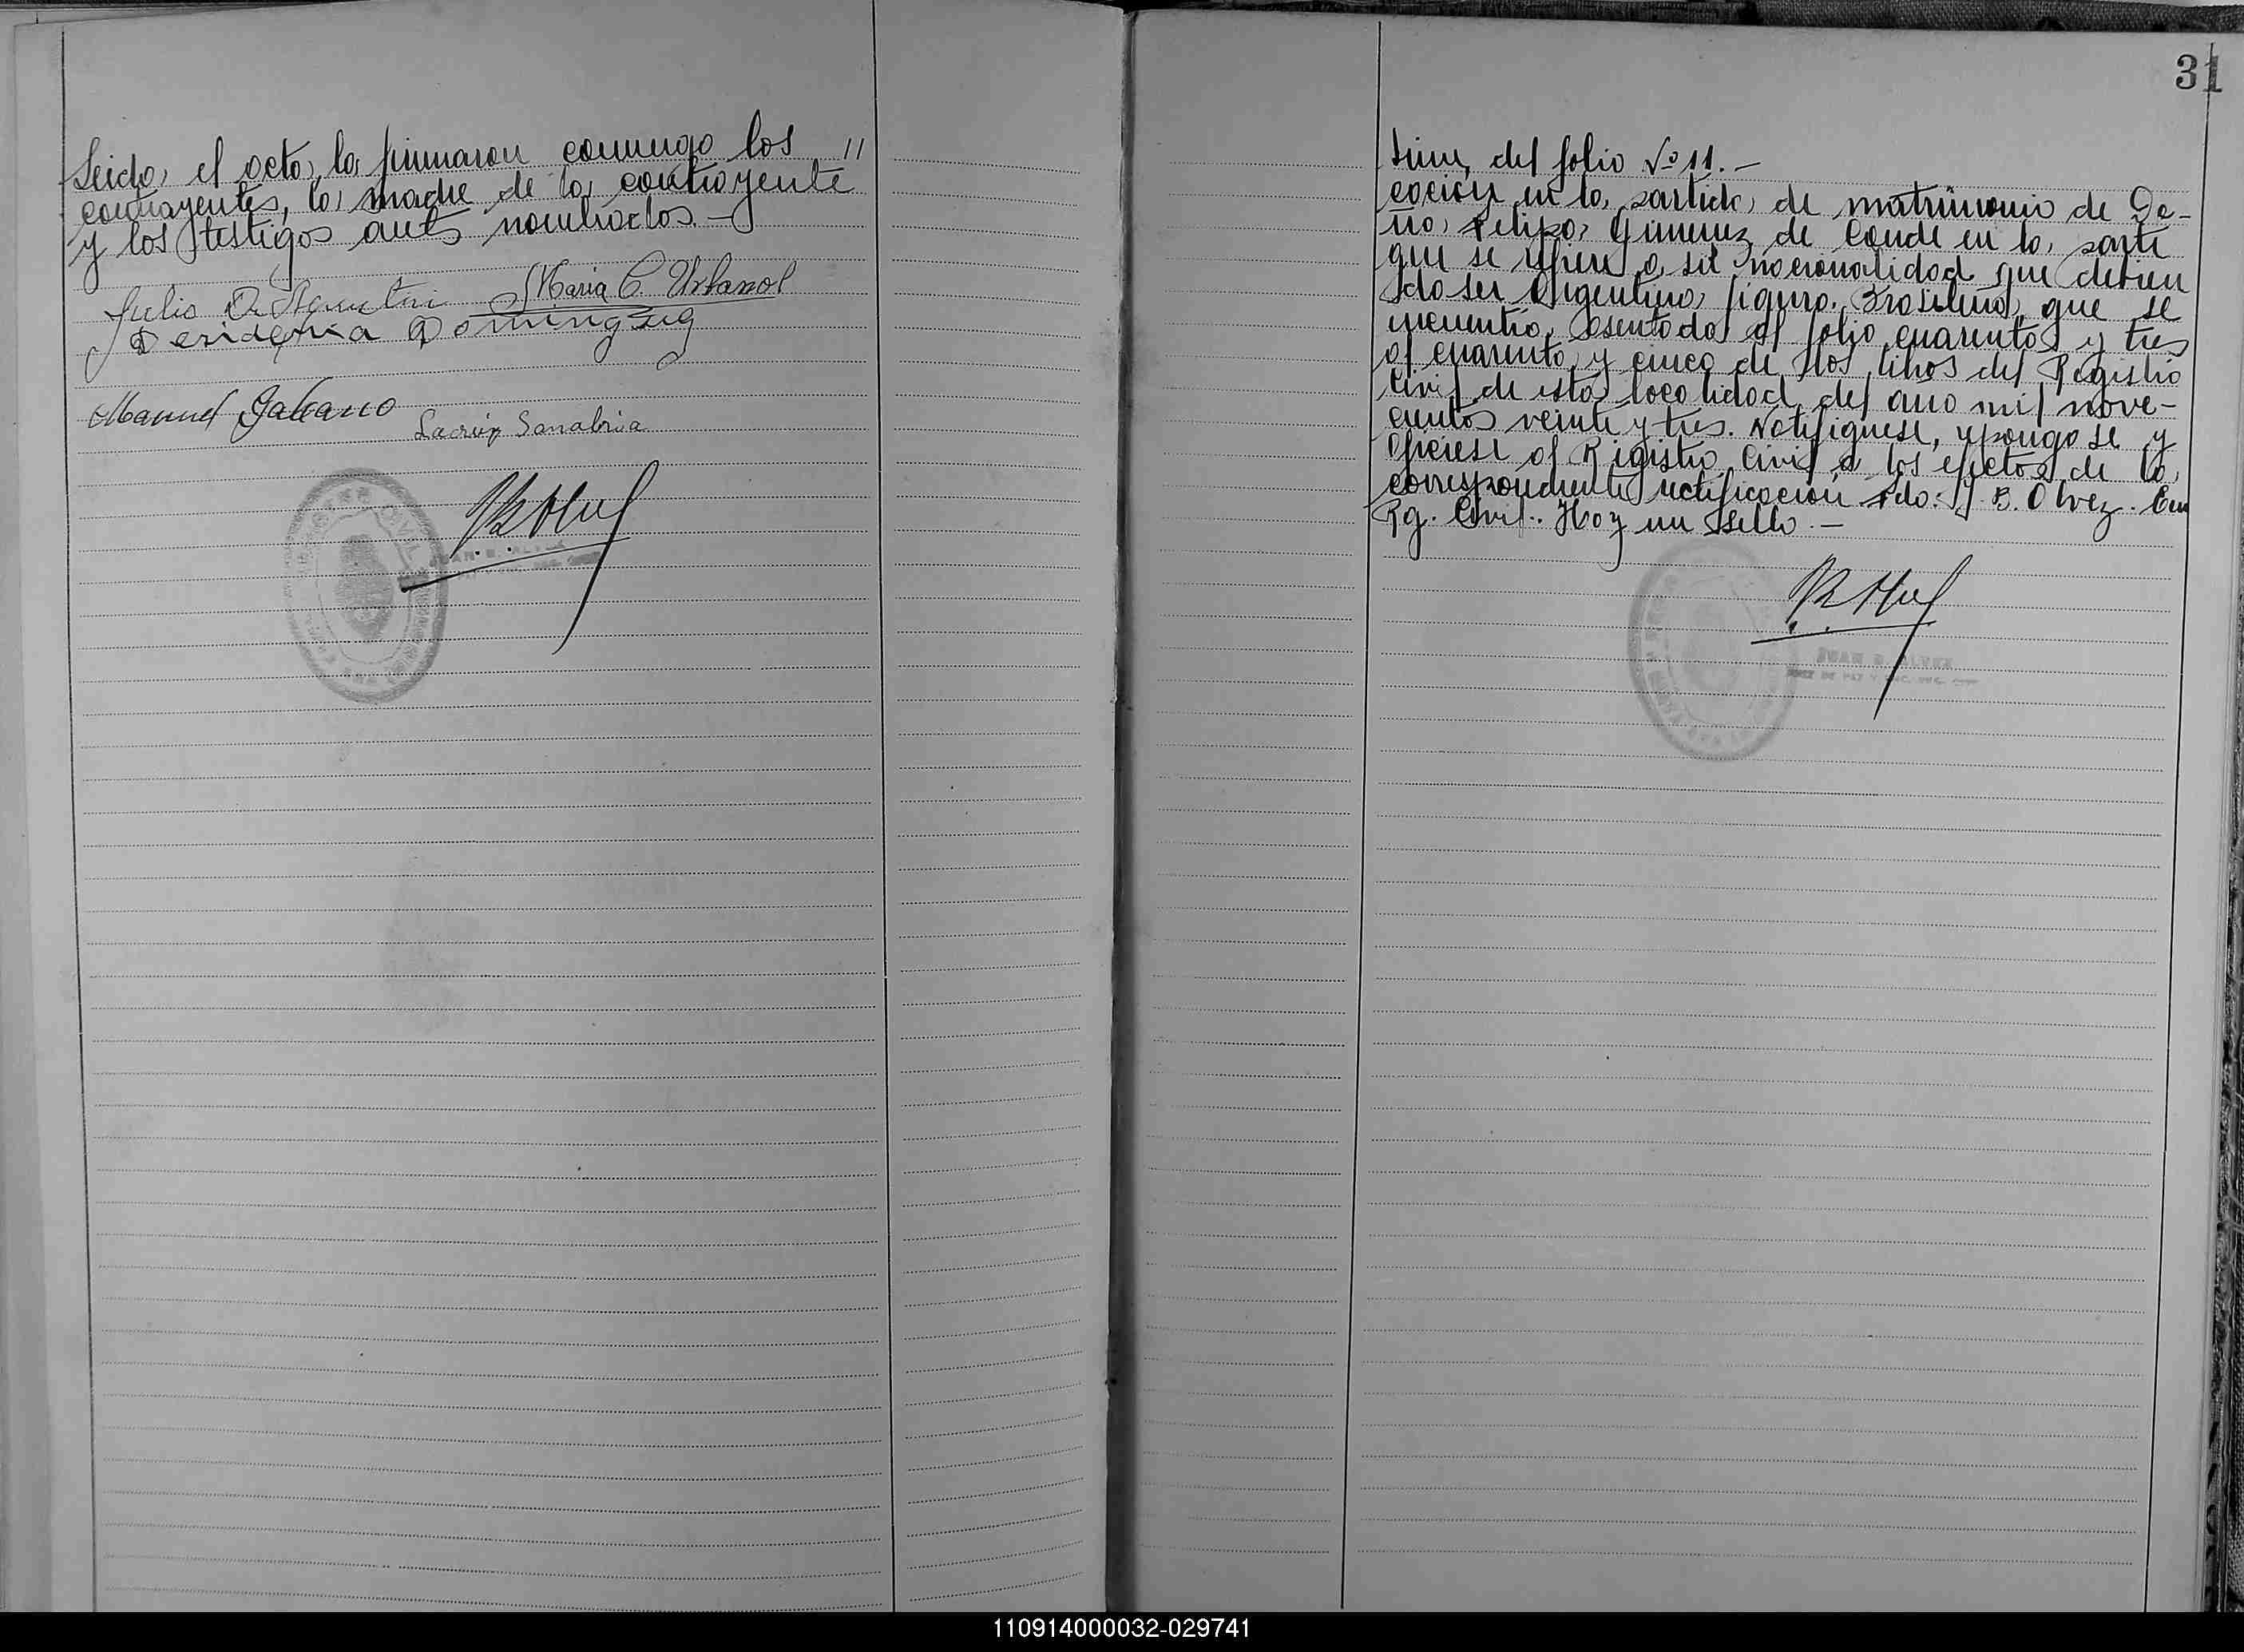 Leido, el acto, la firmaron conmigo los //
contrayentes, la madre de la contrayente
y los testigos antes nombrados.-
Julio D. Agustini María C. Urbanol
Desideria Dominguez
Manuel Galeano
Lacruz Sanabria
REGISTRO CIVIL
JUAN B. ALVEZ
31
del folio Nº 11.-
cación en la partida de matrimonio de Do-
ña Felipa Gimenez de Conde en la parte
que se refiere a su nacionalidad que debien
do ser Argentina, figura Brasilera, que se
encuentra asentada al folio cuarenta y tres
al cuarenta y cinco de los libros del Registro
Civil de esta localidad del año mil nove-
cientos veinte y tres. Notifiquese, repongase y
ofíciese al Registro Civil a los efectos de la
correspondiente rectificación. Fdo: J. B. Alvez. Enc
Rg. Civil. Hay un sello.-
JUAN B. ALVEZ
JUEZ DE PAZ Y ENC. REG.
110914000032-029741